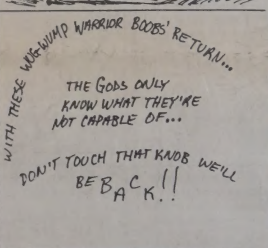 WITH THESE WUG-WUMP WARRIOR BOOBS' RETURN...
THE GODS ONLY
KNOW WHAT THEY'RE
NOT CAPABLE OF...
DON'T TOUCH THAT KNOB WE'LL
BE BACK!!